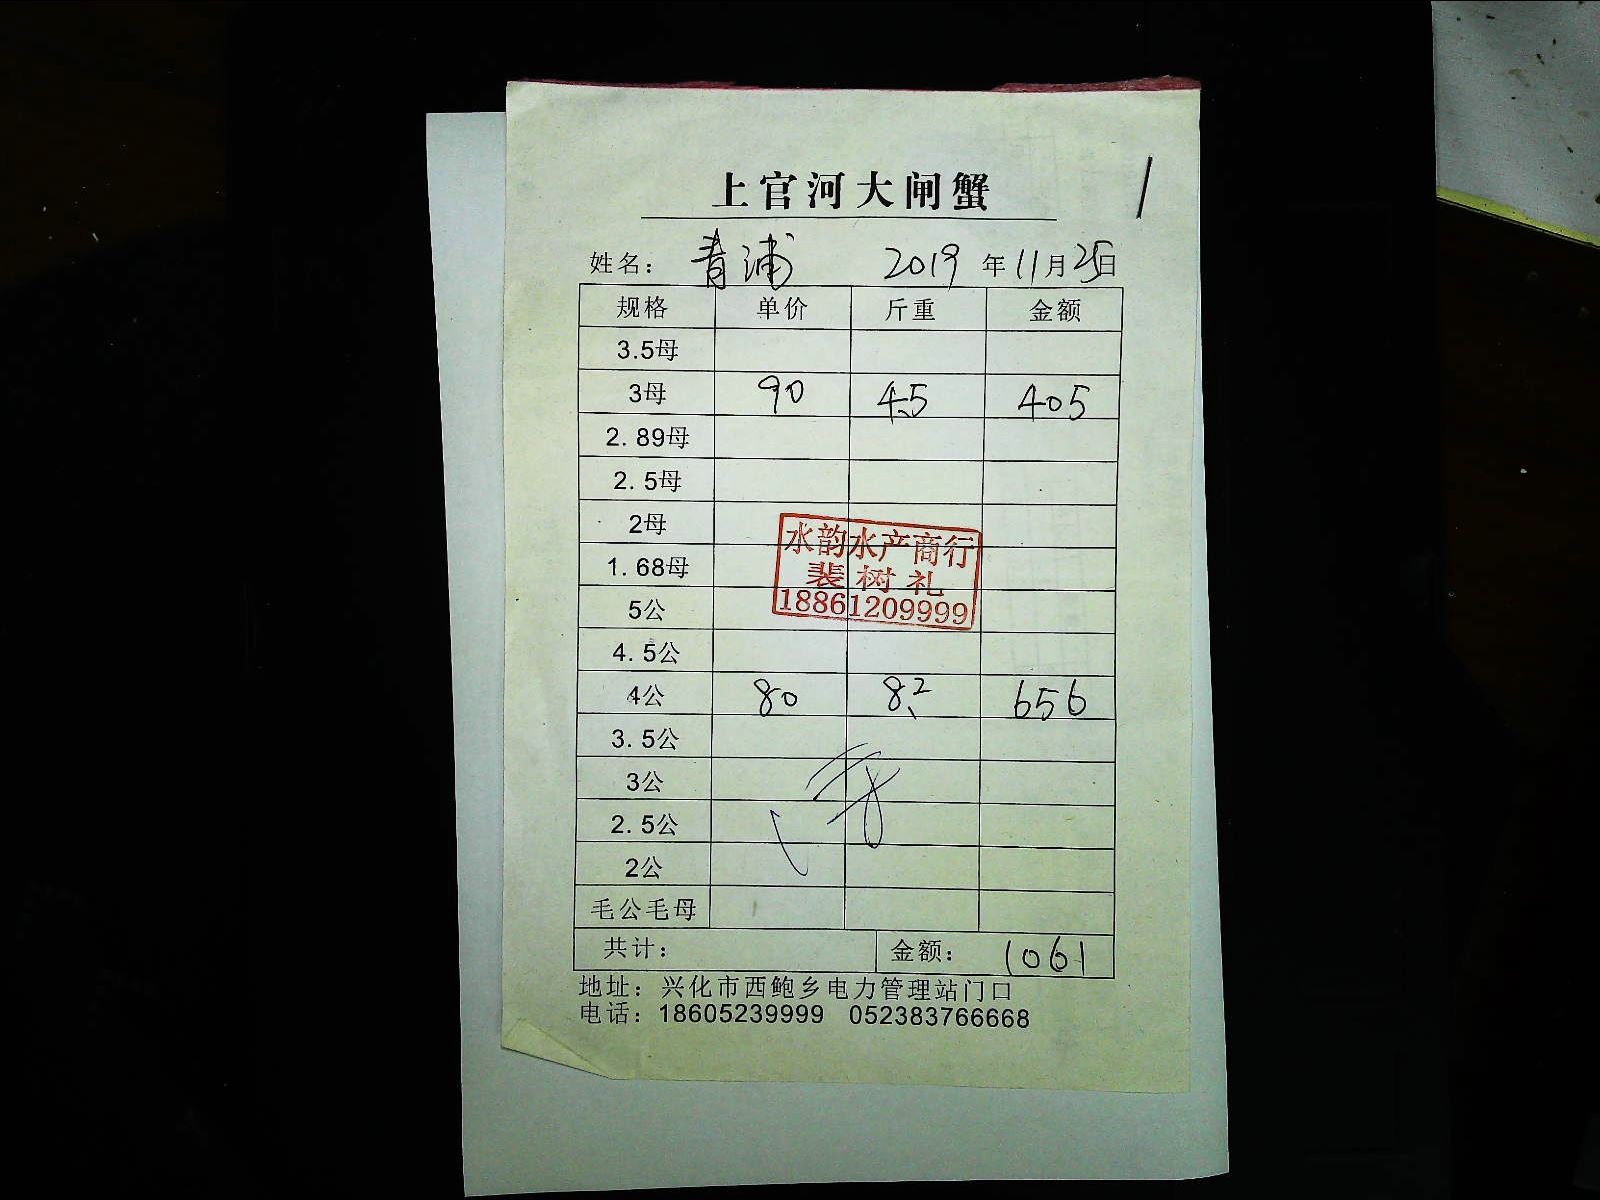 上官河大闸蟹
/
姓名： 青浦 2019年11月25日
规格 单价 斤重 金额
3.5母
3母 90 4.5 405
2.89母
2.5母
2母
1.68母
5公
4.5公
4公 80 8.2 656
3.5公
3公
2.5公
2公
毛公毛母
共计： 金额： 1061
地址：兴化市西鲍乡电力管理站门口
电话：18605239999 052383766668
水韵水产商行
裴树礼
18861209999